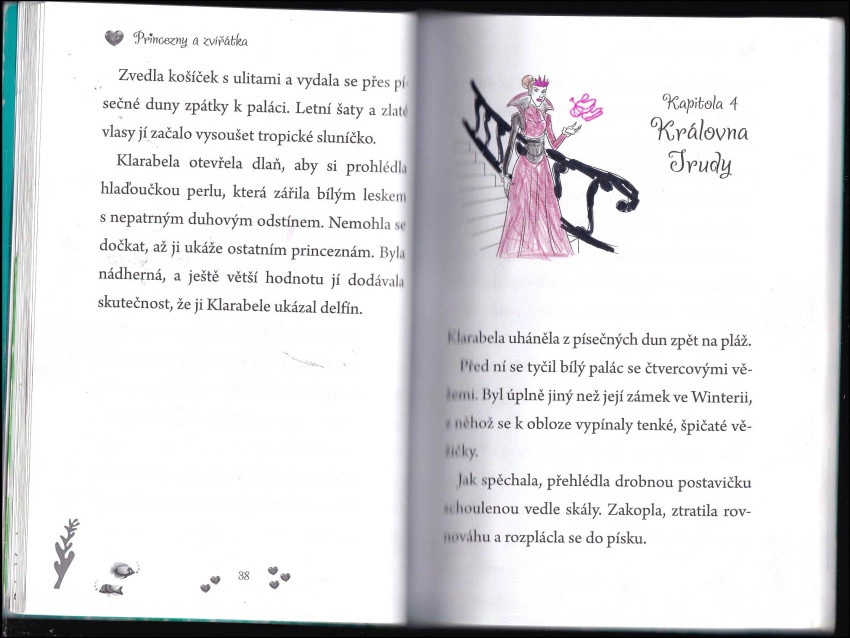 Princezny a zvířátka
Zvedla košíček s ulitami a vydala se přes pí-
sečné duny zpátky k paláci. Letní šaty a zlaté
vlasy jí začalo vysoušet tropické sluníčko.
Klarabela otevřela dlaň, aby si prohlédla
hlaďoučkou perlu, která zářila bílým leskem
s nepatrným duhovým odstínem. Nemohla se
dočkat, až ji ukáže ostatním princeznám. Byla
nádherná, a ještě větší hodnotu jí dodávala
skutečnost, že ji Klarabele ukázal delfín.
38
Kapitola 4
Královna
Trudy
Klarabela uháněla z písečných dun zpět na pláž.
Před ní se tyčil bílý palác se čtvercovými vě-
žemi. Byl úplně jiný než její zámek ve Winterii,
z něhož se k obloze vypínaly tenké, špičaté vě-
žičky.
Jak spěchala, přehlédla drobnou postavičku
schoulenou vedle skály. Zakopla, ztratila rov-
nováhu a rozplácla se do písku.